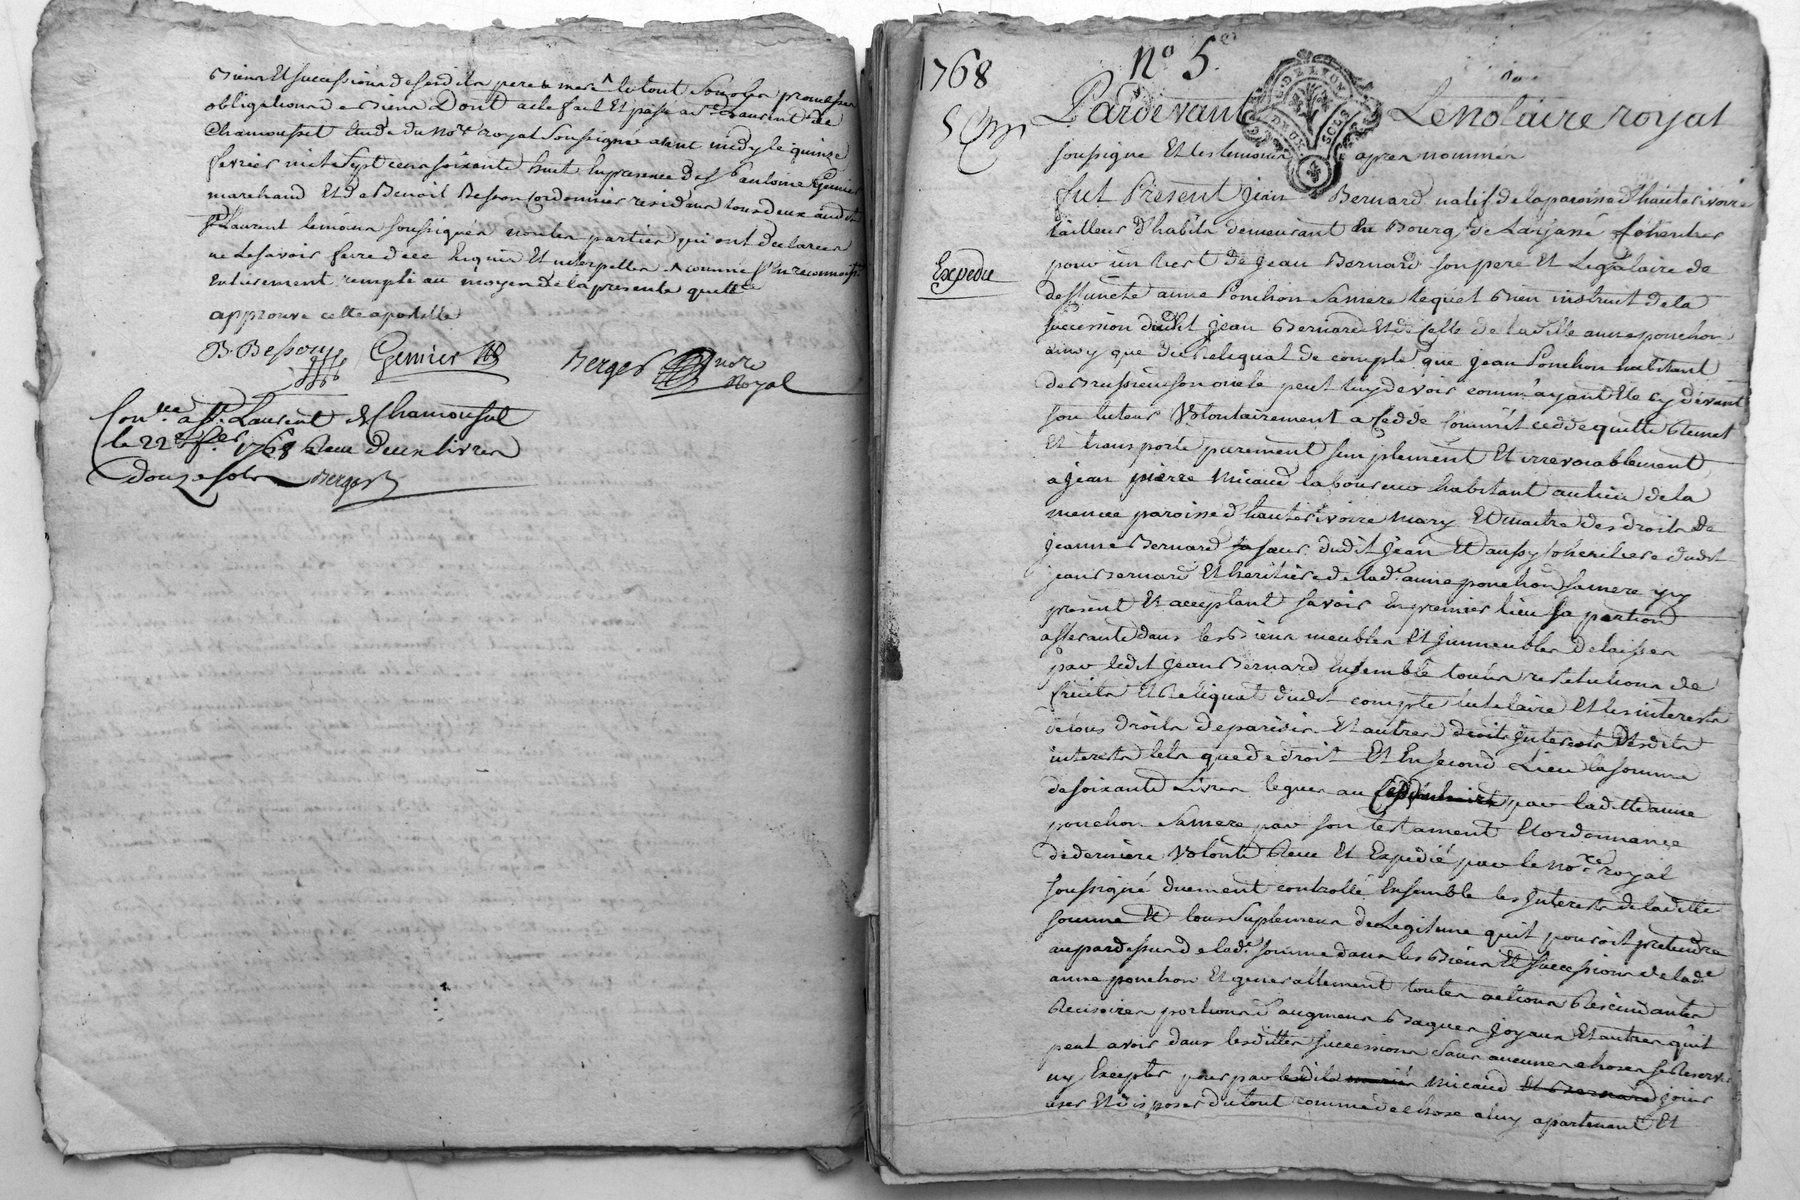 Biens et successions de sesdits pere & mere ^ le tout sous les promesses
obligations de Biens &a Dont acte fait et passé a St Laurent de
Chamousset etude du nore royal soussigné avant midy le quinze
fevrier mil sept cens soixante huit en presence de sr antoine Genier
marchand et de Benoit Besson Cordonnier residans tous deux audit
St Laurent temoins soussignés non les parties qui ont declarées
ne le savoir faire de ce enquis et interpellés ^ comme s'en reconnoiss
entierement remplie au moyen de la presente quittce
approuvé cette apostille
B. Besson Genier Berger nore
Royal
Conlle a St Laurent de Chamousset
le 22e fer 1768 Recu deux livres
douze sols Berger
1768
No 5e
G. DE LYON
DEUX SOLS
Pardevant Le Notaire royal
soussigné et les temoins apres nommés
Expedié
fut Present Jean Bernard natif de la paroisse d'hauterivoire
tailleur d'habits demeurant au Bourg de Larjasse Coheritier
pour un tiers de Jean Bernard son pere et Legataire de
deffuncte anne Ponchon sa mere lequel Bien instruit de la
succession dudit Jean Bernard et de celle de laditte anne ponchon
ainsy que du reliquat de compte que Jean Ponchon habitant
de Brussieu son oncle peut luy devoir comme ayant eté cy devant
son tuteur Volontairement a Cedé Commit cedde quitte Remet
et transporte purement simplement et irrevocablement
a Jean pierre Micaud laboureur habitant au lieu de la
memee paroisse d'hauterivoire mary et maitre des droits de
jeanne Bernard sa sœur dudit Jean et aussy Coheritiere dudit
jean Bernard et heritiere de lade anne ponchon sa mere icy
present et acceptant savoir en premier lieu sa portion
afferante dans les Biens meubles et immeubles delaissés
par ledit Jean Bernard ensemble toutes restitutions de
fruits et Reliquat dudit compte tutelaire et les interests
et autres droits interests desdits
interests tels que de droit et En second Lieu la somme
de soixante Livres legues au par laditte anne
ponchon sa mere par son testament et ordonnance
de derniere Volonté Recu et Expedié par le nore royal
soussigné duement controllé Ensemble les Interets de laditte
somme et tous suplemens de Legitime quil pouroit pretendre
au par dessus de lade somme dans les Biens et successions de lade
anne ponchon et generallement toutes actions Rescindantes
Recisoires portions d'augmens Bagues joyaux et autres qu'il
peut avoir dans lesdittes successions sans aucunes choses se Reserver
ny Excepter pour par ledit Micaud et Bernard jouir
user et disposer du tout comme de chose a luy apartenant et